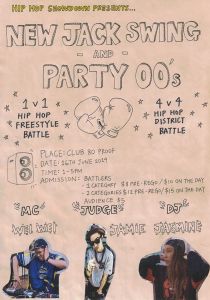 HIP HOP SHOWDOWN PRESENTS...
NEW JACK SWING
- AND -
PARTY 00's
1 v 1
HIP HOP
FREESTYLE
BATTLE
4 v 4
HIP HOP
DISTRICT
BATTLE
PLACE: CLUB 80 PROOF
DATE: 16TH JUNE 2019
TIME: 1-5PM
ADMISSION: BATTLERS
- 1 CATEGORY $8 PRE-REGO / $10 ON THE DAY
- 2 CATEGORIES $12 PRE-REGO / $15 ON THE DAY
AUDIENCE $5
"MC"
WEI WEI
"JUDGE"
JAMIE
"DJ"
JASMINE